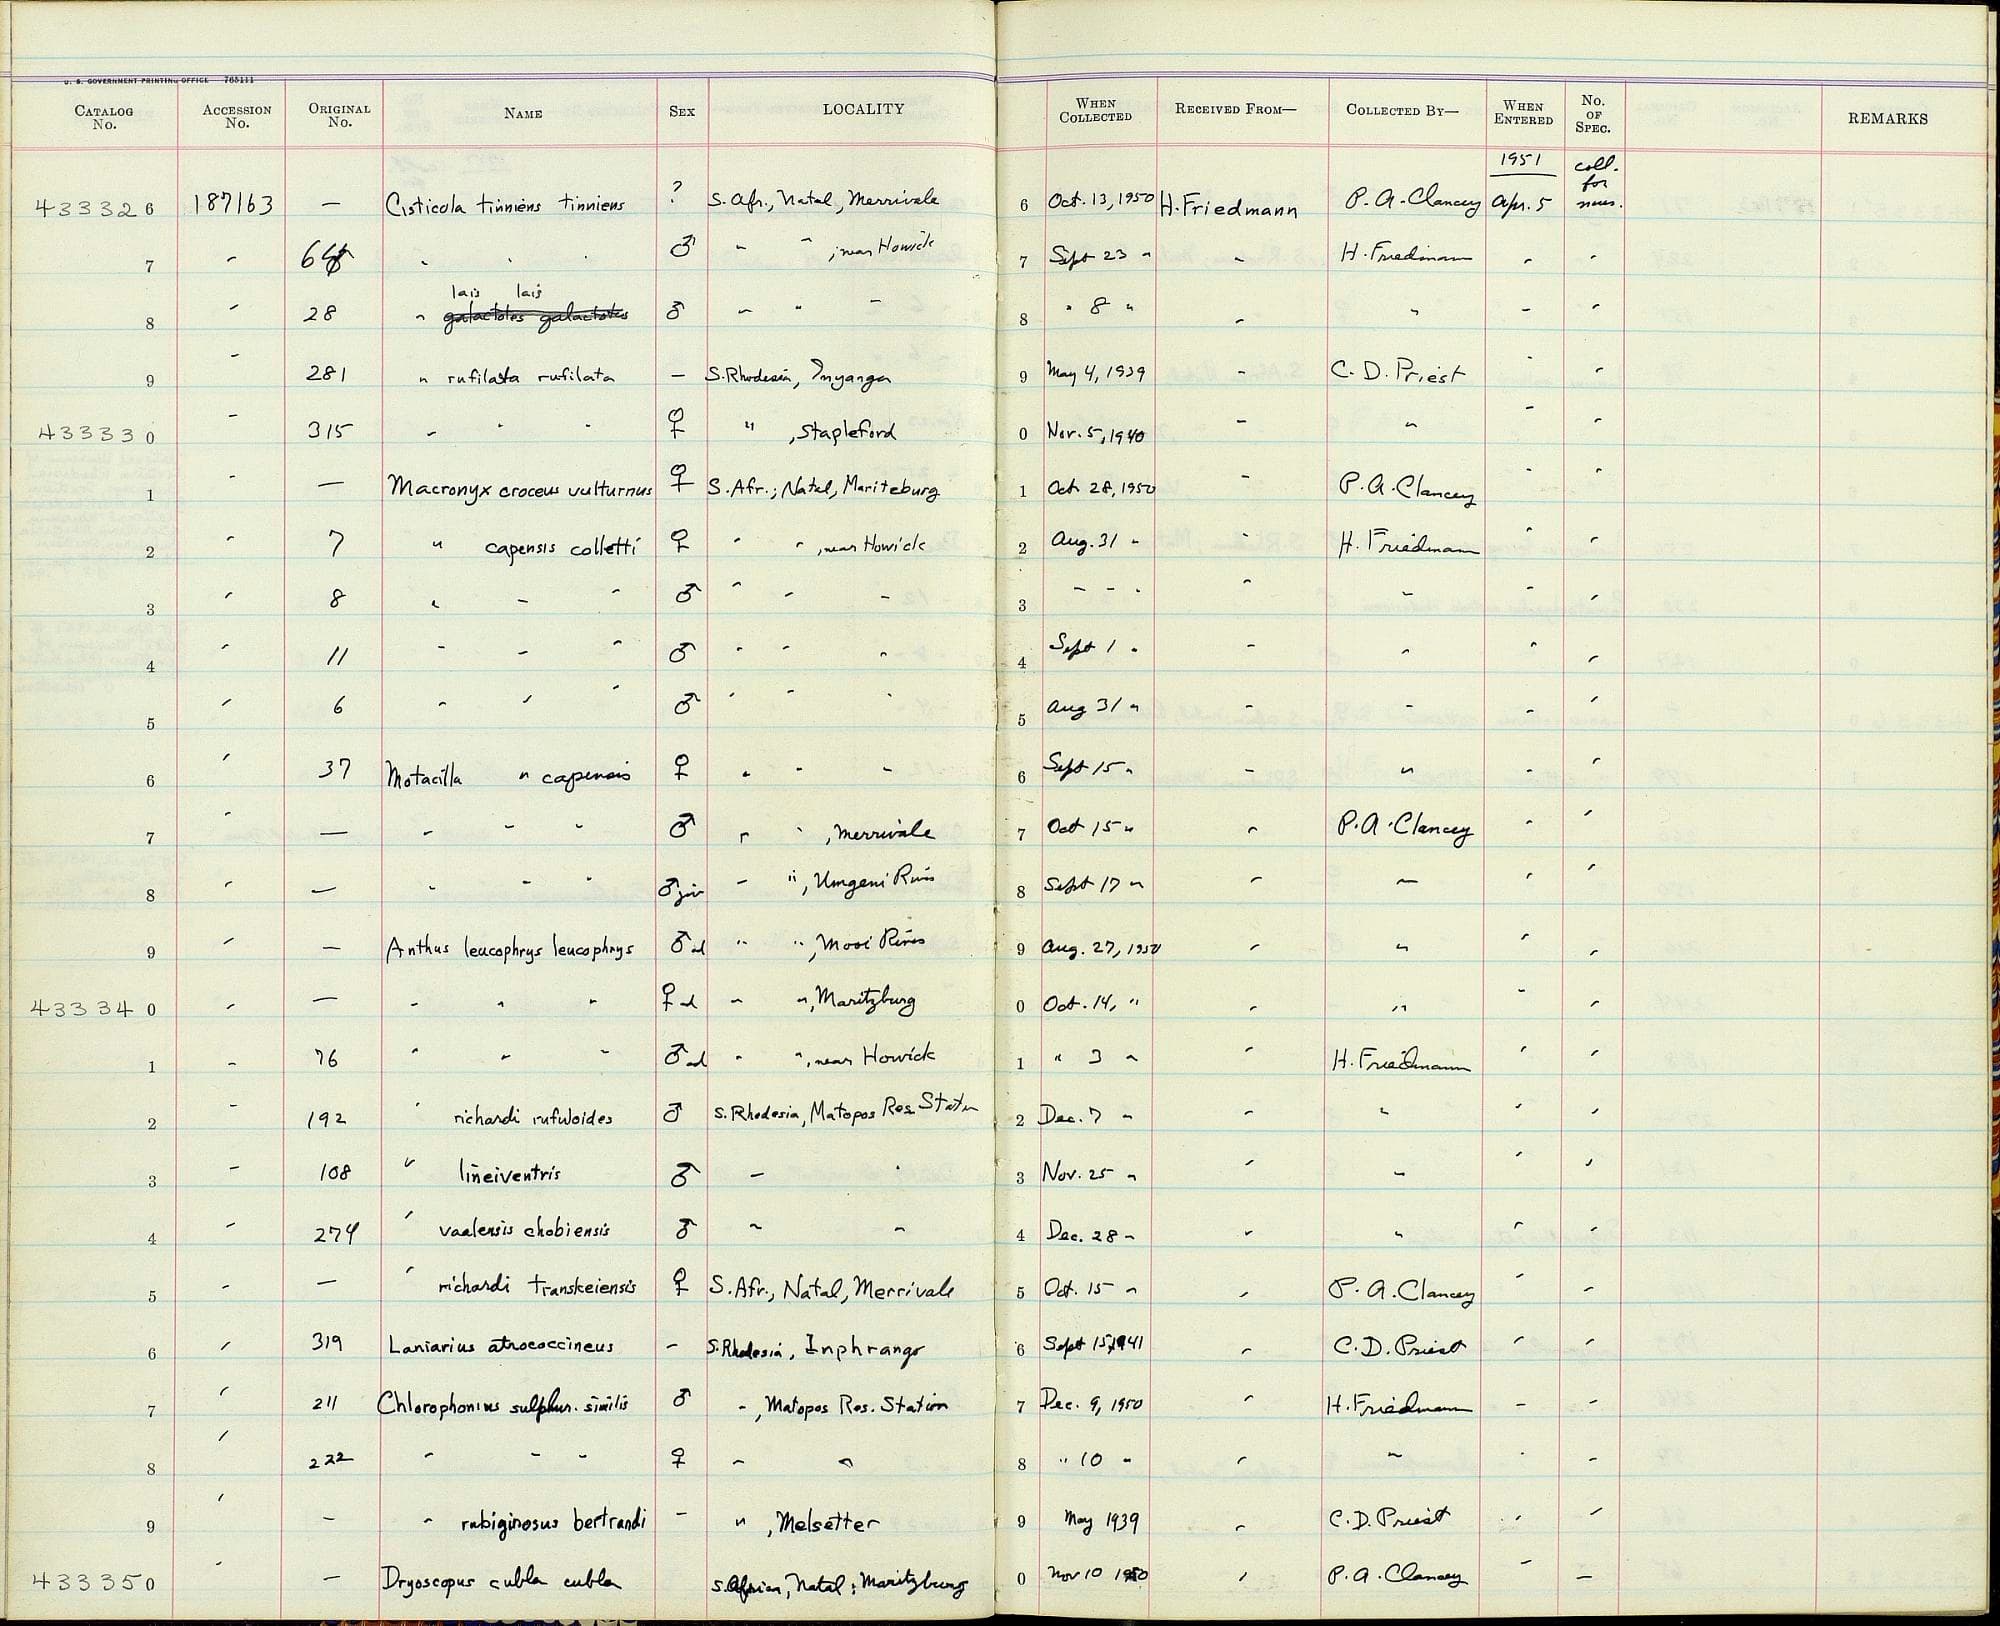 U. S. GOVERNMENT PRINTING OFFICE 765111
CATALOG No. ACCESSION No. ORIGINAL No. NAME SEX LOCALITY WHEN COLLECTED RECEIVED FROM— COLLECTED BY— WHEN ENTERED No. OF SPEC. REMARKS
1951 coll. for mus.
433326 187163 — Cisticola tinniens tinniens ? S. Afr., Natal, Merrivale 6 Oct. 13, 1950 H. Friedmann P. A. Clancey Apr. 5
7 " " " " ♂ " " ; near Howick 7 Sept 23 " " H. Friedmann " "
lais lais
8 " 28 " galactotes galactotes ♂ " " " 8 " 8 " " " " "
9 " 281 " rufilata rufilata — S. Rhodesia, Inyanga 9 May 4, 1939 " C. D. Priest " "
433330 " 315 " " " ♀ " , Stapleford 0 Nov. 5, 1940 " " " "
1 " — Macronyx croceus vulturnus ♀ S. Afr.; Natal, Mariteburg 1 Oct 28, 1950 " P. A. Clancey " "
2 " 7 " capensis colletti ♀ " " , near Howick 2 Aug. 31 " " H. Friedmann " "
3 " 8 " " " ♂ " " " 3 " " " " " " "
4 " 11 " " " ♂ " " " 4 Sept 1 " " " " "
5 " 6 " " " ♂ " " " 5 Aug 31 " " " " "
6 " 37 Motacilla " capensis ♀ " " " 6 Sept 15 " " " " "
7 " — " " " ♂ " " , Merrivale 7 Oct 15 " " P. A. Clancey " "
8 " — " " " ♂ juv " " , Umgeni River 8 Sept 17 " " " " "
9 " — Anthus leucophrys leucophrys ♂ ad " " , Mooi River 9 Aug. 27, 1950 " " " "
433340 " — " " " ♀ ad " " , Maritzburg 0 Oct. 14, " " " " "
1 " 76 " " " ♂ ad " " , near Howick 1 " 3 " " H. Friedmann " "
2 " 192 " richardi rufuloides ♂ S. Rhodesia, Matopos Res. Station 2 Dec. 7 " " " " "
3 " 108 " lineiventris ♂ " " 3 Nov. 25 " " " " "
4 " 274 " vaalensis chobiensis ♂ " " 4 Dec. 28 " " " " "
5 " — " richardi transkeiensis ♀ S. Afr., Natal, Merrivale 5 Oct. 15 " " P. A. Clancey " "
6 " 319 Laniarius atrococcineus — S. Rhodesia, Inphrango 6 Sept 15, 1941 " C. D. Priest " "
7 " 211 Chlorophonius sulphur. similis ♂ " , Matopos Res. Station 7 Dec. 9, 1950 " H. Friedmann " "
8 " 222 " " " ♀ " " 8 " 10 " " " " "
9 " — " rubiginosus bertrandi — " , Melsetter 9 May 1939 " C. D. Priest " "
433350 " — Dryoscopus cubla cubla S. African, Natal, Maritzburg 0 Nov 10 1950 " P. A. Clancey " —